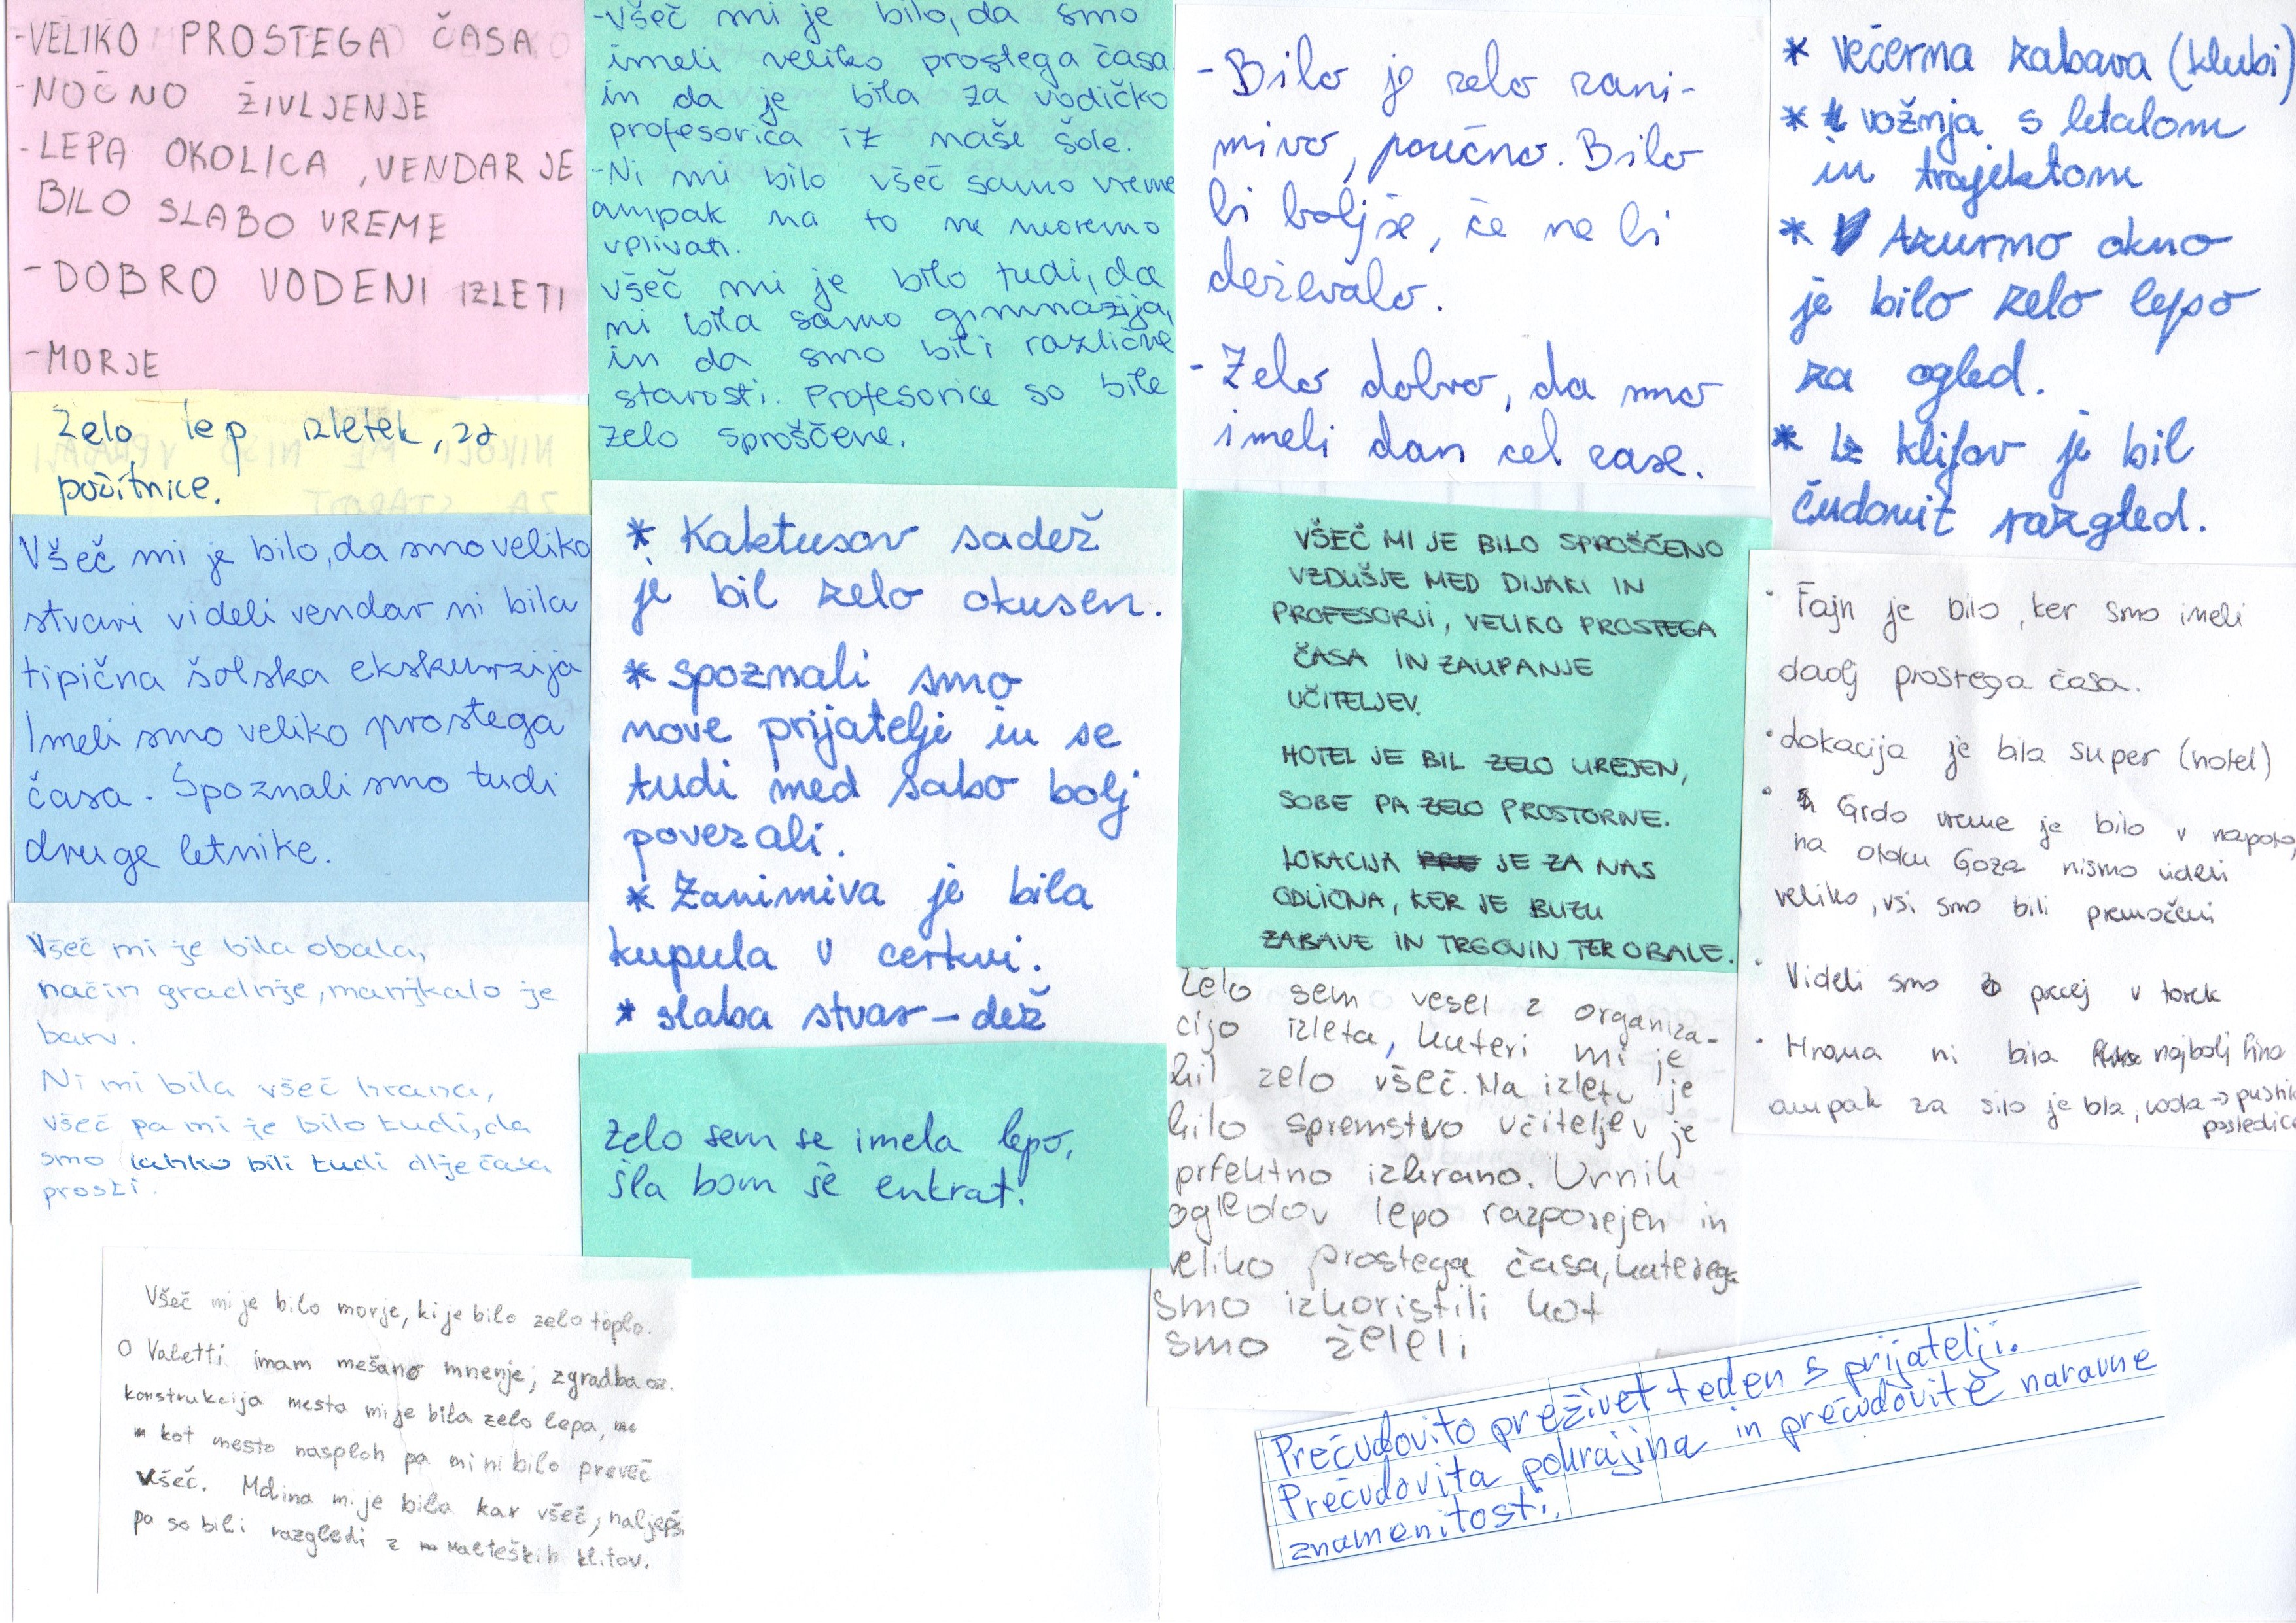 -VELIKO PROSTEGA ČASA
-NOČNO ŽIVLJENJE
-LEPA OKOLICA, VENDAR JE
BILO SLABO VREME
-DOBRO VODENI IZLETI
-MORJE
Zelo lep izletek, za
počitnice.
Všeč mi je bilo, da smo veliko
stvari videli vendar ni bila
tipična šolska ekskurzija
Imeli smo veliko prostega
časa. Spoznali smo tudi
druge letnike.
Všeč mi je bila obala,
način gradnje, manjkalo je
barv.
Ni mi bila všeč hrana,
všeč pa mi je bilo tudi, da
smo lahko bili tudi dlje časa
prosti.
Všeč mi je bilo morje, ki je bilo zelo toplo.
O Valetti imam mešano mnenje; zgradba oz.
konstrukcija mesta mi je bila zelo lepa,
kot mesto nasploh pa mi ni bilo preveč
všeč. Mdina mi je bila kar všeč, najlepši
pa so bili razgledi z Malteških klifov.
-Všeč mi je bilo, da smo
imeli veliko prostega časa
in da je bila za vodičko
profesorica iz naše šole.
-Ni mi bilo všeč samo vreme
ampak na to ne moremo
vplivati.
Všeč mi je bilo tudi, da
ni bila samo gimnazija,
in da smo bili različne
starosti. Profesorice so bile
zelo sproščene.
* Kaktusov sadež
je bil zelo okusen.
* spoznali smo
nove prijatelje in se
tudi med sabo bolj
povezali.
* Zanimiva je bila
kupula v cerkvi.
* slaba stvar - dež
Zelo sem se imela lepo,
šla bom še enkrat.
-Bilo je zelo zani-
mivo, poučno. Bilo
bi boljše, če ne bi
deževalo.
-Zelo dobro, da smo
imeli dan cel zase.
VŠEČ MI JE BILO SPROŠČENO
VZDUŠJE MED DIJAKI IN
PROFESORJI, VELIKO PROSTEGA
ČASA IN ZAUPANJE
UČITELJEV.
HOTEL JE BIL ZELO UREJEN,
SOBE PA ZELO PROSTORNE.
LOKACIJA JE ZA NAS
ODLIČNA, KER JE BLIZU
ZABAVE IN TRGOVIN TER OBALE.
Zelo sem vesel z organiza-
cijo izleta, kateri mi je
bil zelo všeč. Na izletu je
bilo spremstvo učiteljev je
prfektno izbrano. Urnik
ogledov lepo razporejen in
veliko prostega časa, katerega
smo izkoristili kot
smo želeli
* večerna zabava (klubi)
* vožnja s letalom
in trajektom
* Azurno okno
je bilo zelo lepo
za ogled.
* Iz klifov je bil
čudovit razgled.
• Fajn je bilo, ker smo imeli
daolj prostega časa.
• Lokacija je bila super (hotel)
• Grdo vreme je bilo v napoto,
na otoku Goza nismo videli
veliko, vsi smo bili premočeni
• Videli smo precej v torek
• Hrana ni bila najbolj fina
ampak za silo je bla, voda → pustila
posledice
Prečudovito preživet teden s prijatelji.
Prečudovita pokrajina in prečudovite naravne
znamenitosti.